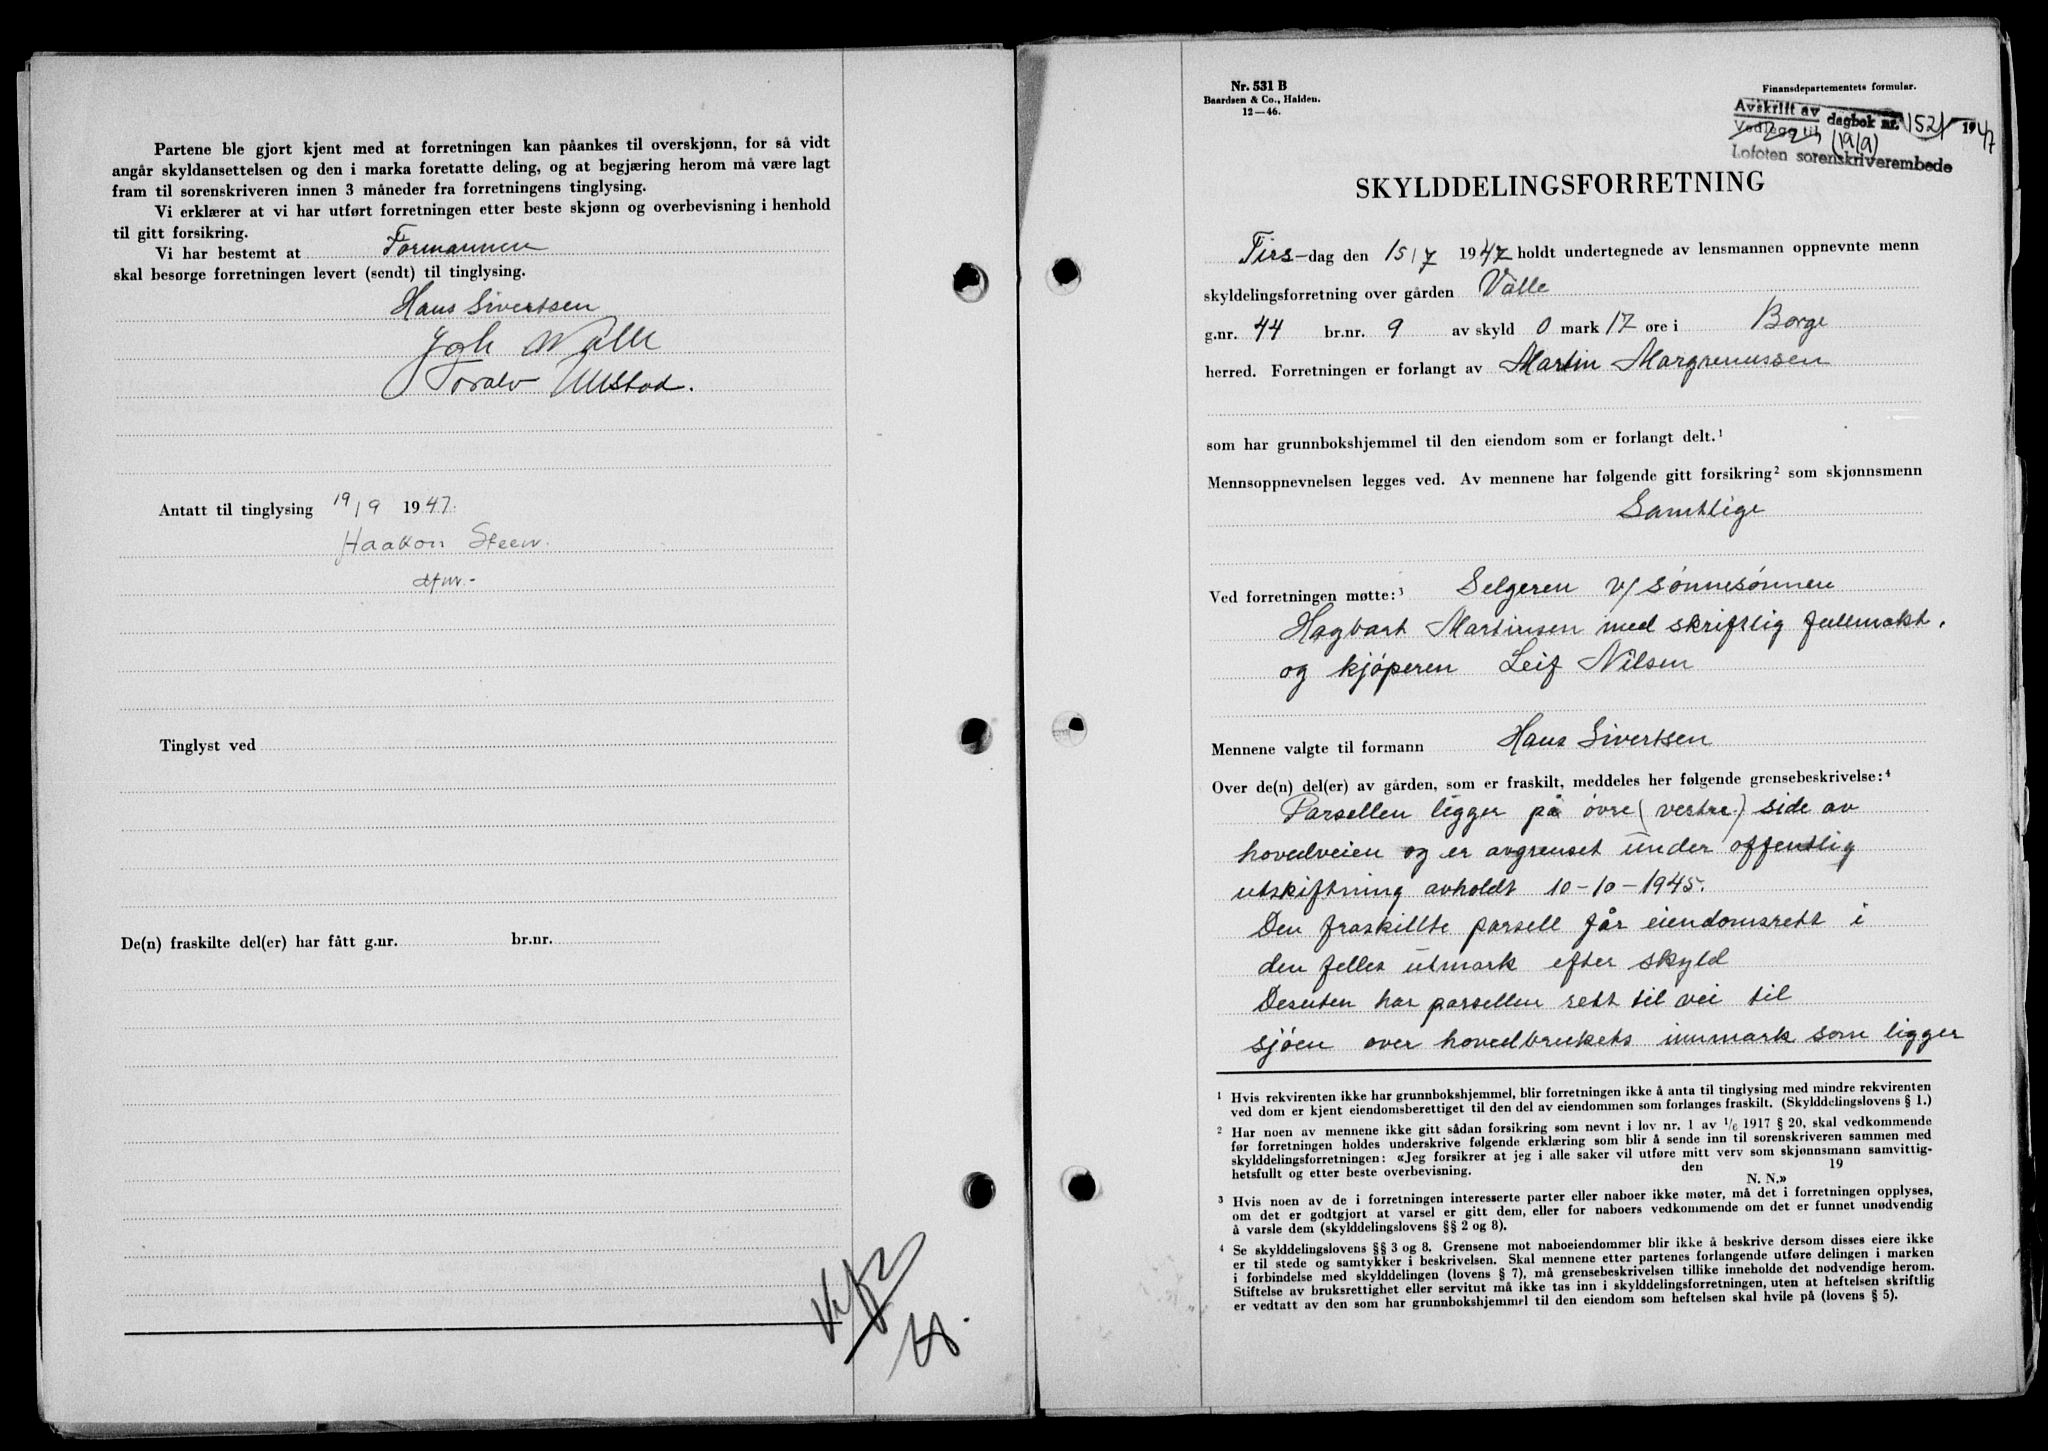 Partene ble gjort kjent med at forretningen kan påankes til overskjønn, for så vidt
angår skyldansettelsen og den i marka foretatte deling, og at begjæring herom må være lagt
fram til sorenskriveren innen 3 måneder fra forretningens tinglysing.
Vi erklærer at vi har utført forretningen etter beste skjønn og overbevisning i henhold
til gitt forsikring.
Vi har bestemt at Formannen
skal besørge forretningen levert (sendt) til tinglysing.
Hans Sivertsen
Joh Valle
Toralv Unstad.
Antatt til tinglysing 19/9 1947.
Haakon Steen.
Tinglyst ved
De(n) fraskilte del(er) har fått g.nr. br.nr.
Nr. 531 B
Baardsen & Co., Halden.
12—46.
Finansdepartementets formular.
Avskrift av
Vedlegg til dagbok nr. 1521 1947
(19/9)
Lofoten sorenskriverembede
SKYLDDELINGSFORRETNING
Tirs-dag den 15/7 1947 holdt undertegnede av lensmannen oppnevnte menn
skyldelingsforretning over gården Valle
g.nr. 44 br.nr. 9 av skyld 0 mark 17 øre i Borge
herred. Forretningen er forlangt av Martin Margrenussen
som har grunnbokshjemmel til den eiendom som er forlangt delt.¹
Mennsoppnevnelsen legges ved. Av mennene har følgende gitt forsikring² som skjønnsmenn
Samtlige
Ved forretningen møtte:³ Selgeren v/ sønnesønnen
Hagbart Martinsen med skriftlig fullmakt.
og kjøperen Leif Nilsen
Mennene valgte til formann Hans Sivertsen
Over de(n) del(er) av gården, som er fraskilt, meddeles her følgende grensebeskrivelse:⁴
Parsellen ligger på øvre (vestre) side av
hovedveien og er avgrenset under offentlig
utskiftning avholdt 10-10-1945.
Den fraskillte parsell får eiendomsrett i
den felles utmark efter skyld
Desuten har parsellen rett til vei til
sjøen over hovedbrukets innmark som ligger
¹ Hvis rekvirenten ikke har grunnbokshjemmel, blir forretningen ikke å anta til tinglysing med mindre rekvirenten
ved dom er kjent eiendomsberettiget til den del av eiendommen som forlanges fraskilt. (Skylddelingslovens § 1.)
² Har noen av mennene ikke gitt sådan forsikring som nevnt i lov nr. 1 av 1/6 1917 § 20, skal vedkommende
før forretningen holdes underskrive følgende erklæring som blir å sende inn til sorenskriveren sammen med
skylddelingsforretningen: «Jeg forsikrer at jeg i alle saker vil utføre mitt verv som skjønnsmann samvittig-
hetsfullt og etter beste overbevisning. den 19
N. N.»
³ Hvis noen av de i forretningen interesserte parter eller naboer ikke møter, må det i forretningen opplyses,
om det er godtgjort at varsel er gitt dem, eller for naboers vedkommende om det er funnet unødvendig
å varsle dem (skylddelingslovens §§ 2 og 8).
⁴ Se skylddelingslovens §§ 3 og 8. Grensene mot naboeiendommer blir ikke å beskrive dersom disses eiere ikke
er til stede og samtykker i beskrivelsen. Skal mennene etter partenes forlangende utføre delingen i marken
i forbindelse med skylddelingen (lovens § 7), må grensebeskrivelsen tillike inneholde det nødvendige herom.
Stiftelse av bruksrettighet eller servitut må ikke tas inn i skylddelingsforretningen, uten at heftelsen skriftlig
er vedtatt av den som har grunnbokshjemmel til den eiendom som heftelsen skal hvile på (lovens § 5).